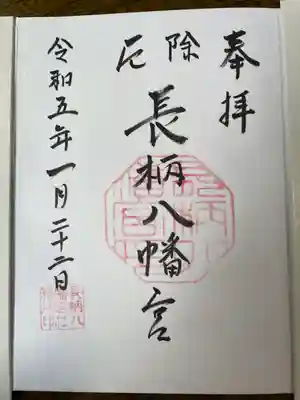 奉拝
厄除
長柄八幡宮
令和五年一月二十二日